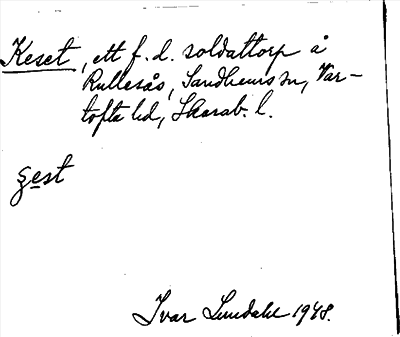 Keset, ett f. d. soldattorp å
Rullesås, Sandhems sn, Var-
tofta hd, Skarab. l.
Ivar Lundahl 1948.